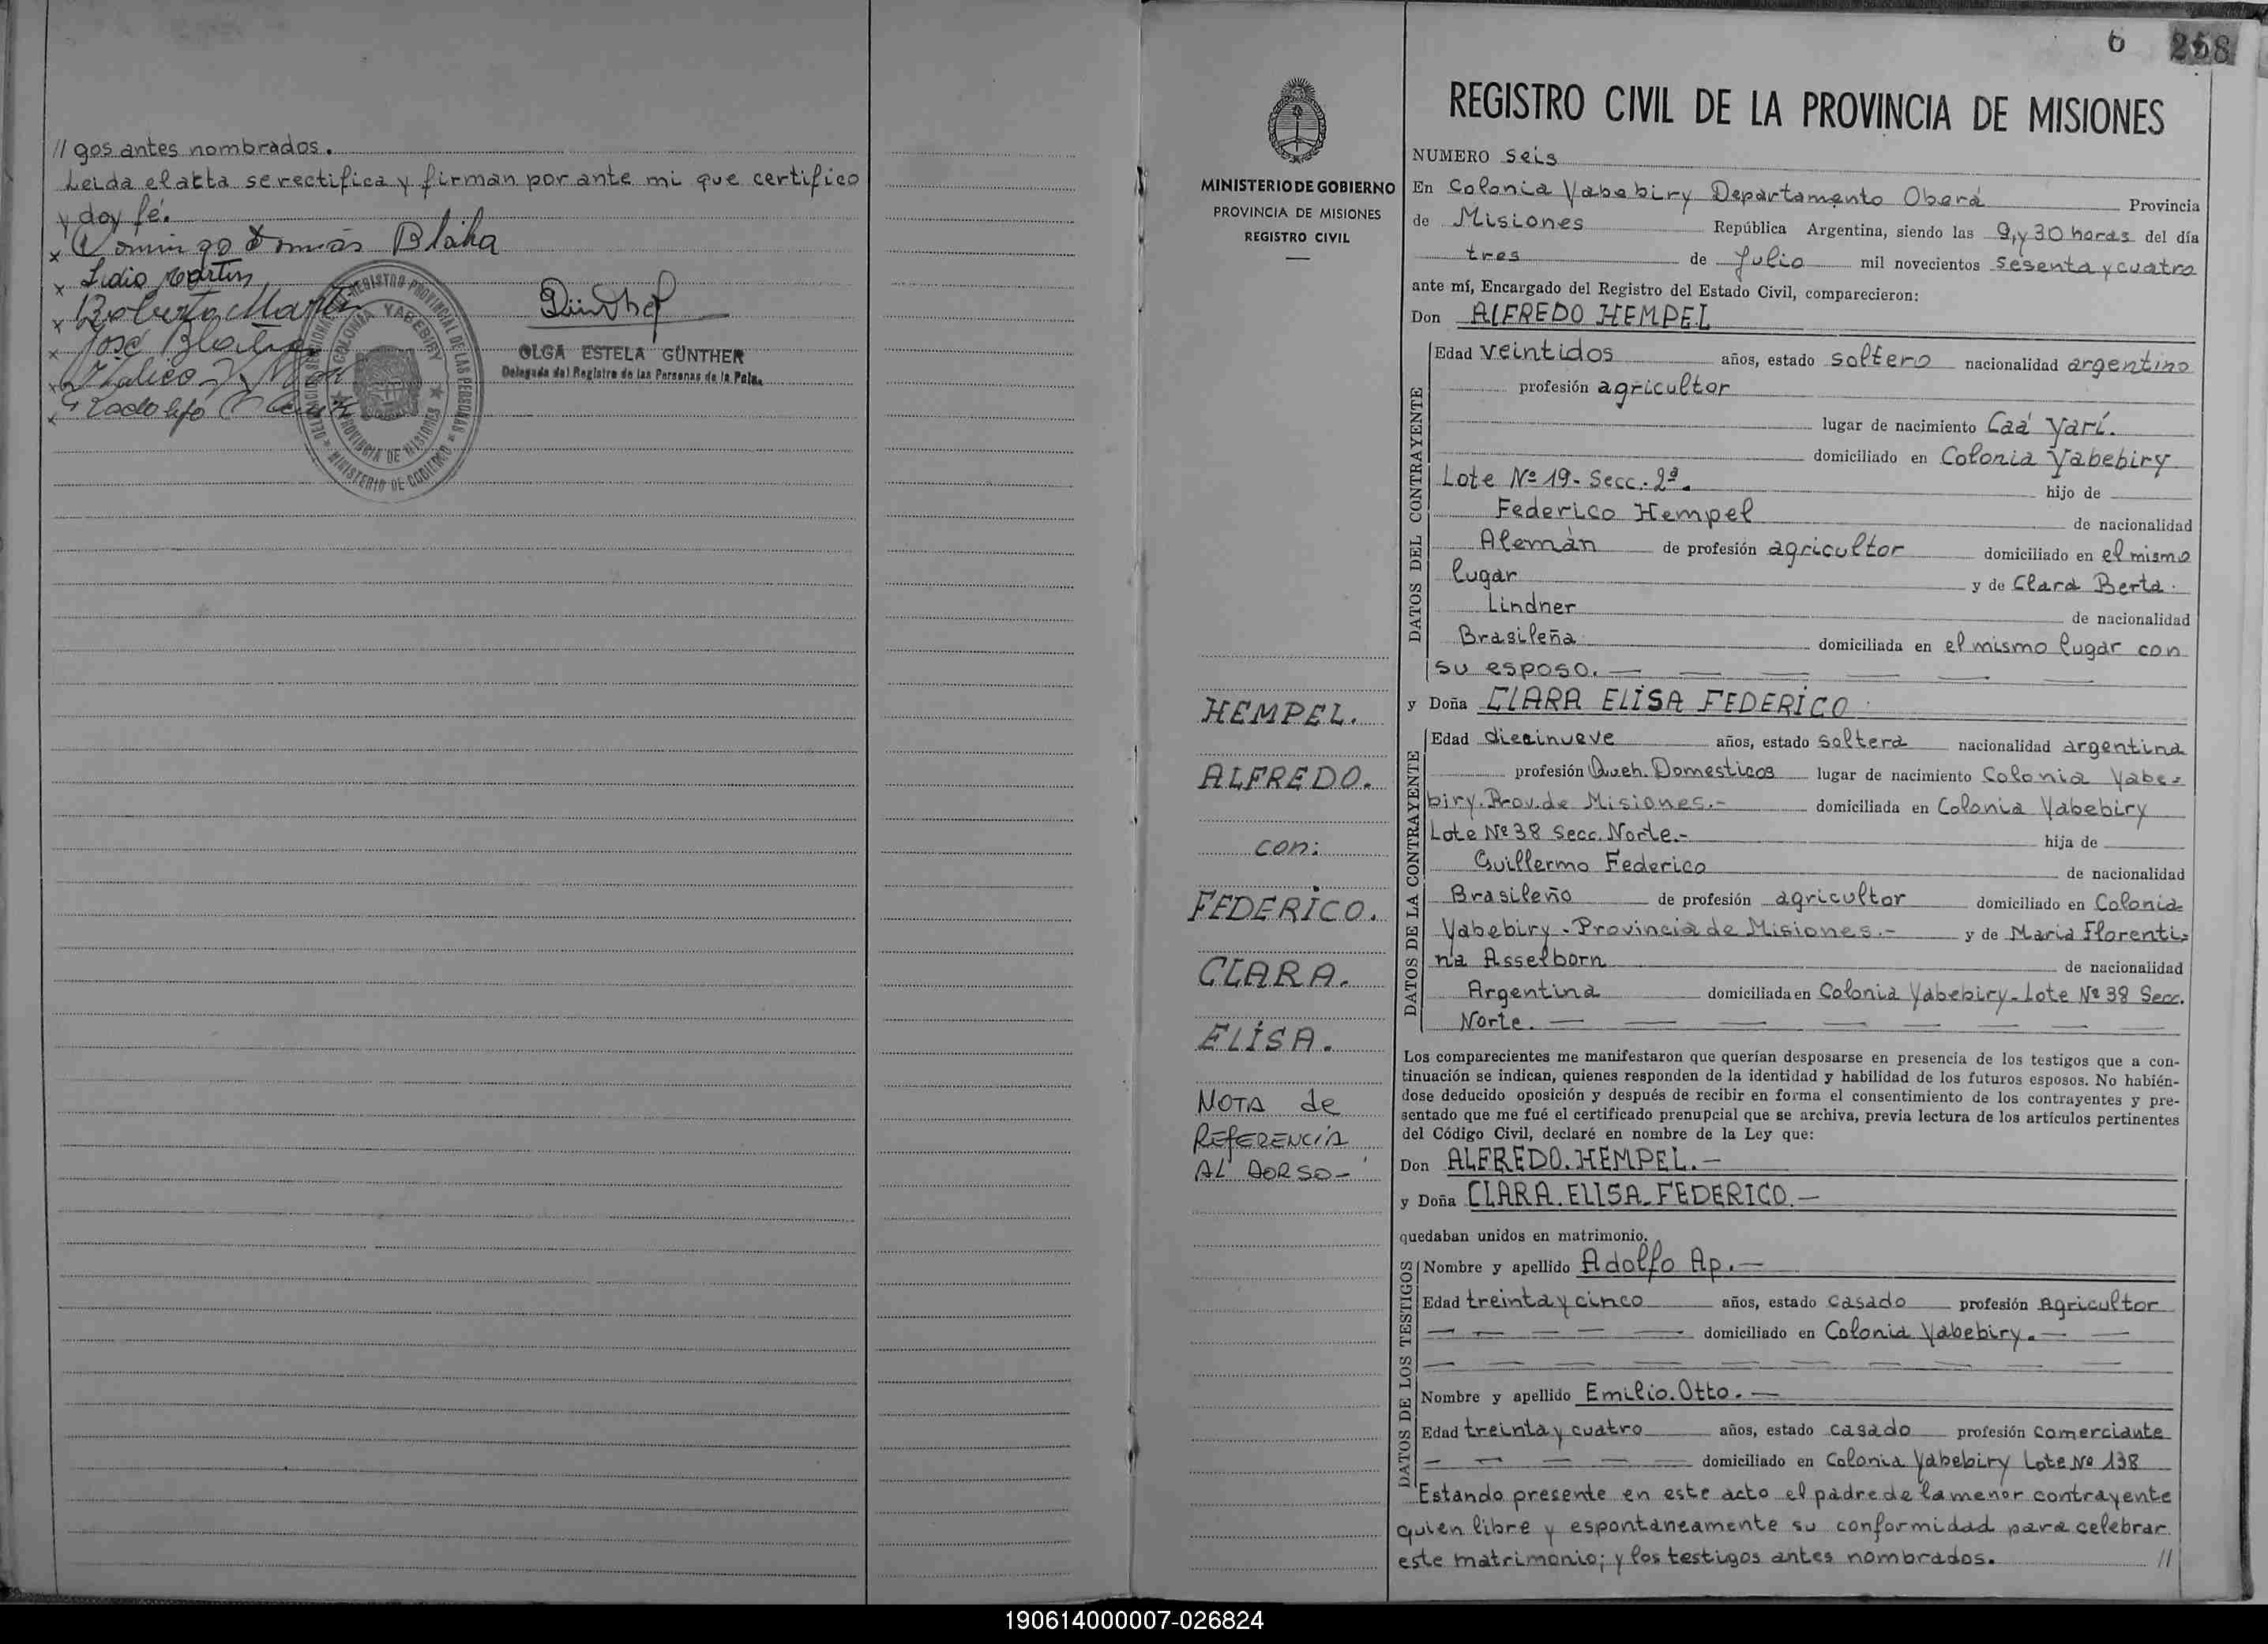 // gos antes nombrados.
Leida el acta se rectifica y firman por ante mi que certifico
y doy fé.
Domingo Tomás Blaha
Lidio Martin
Roberto Martin
José Blaha
OLGA ESTELA GÜNTHER
Delegada del Registro de las Personas de la Pcia.
DELEGACION SECCIONAL REGISTRO PROVINCIAL DE LAS PERSONAS
MINISTERIO DE GOBIERNO
COLONIA YABEBIRY
PROVINCIA DE MISIONES
6 258
MINISTERIO DE GOBIERNO
PROVINCIA DE MISIONES
REGISTRO CIVIL
HEMPEL.
ALFREDO.
con:
FEDERICO.
CLARA.
ELISA.
NOTA de
REFERENCIA
AL DORSO-
REGISTRO CIVIL DE LA PROVINCIA DE MISIONES
NUMERO seis
En Colonia Yabebiry Departamento Oberá Provincia
de Misiones República Argentina, siendo las 9,y 30 horas del día
tres de Julio mil novecientos sesenta y cuatro
ante mí, Encargado del Registro del Estado Civil, comparecieron:
Don ALFREDO HEMPEL
DATOS DEL CONTRAYENTE
Edad veintidos años, estado soltero nacionalidad argentino
profesión agricultor
lugar de nacimiento Caá Yarí.
domiciliado en Colonia Yabebiry
Lote Nº 19- Secc. 2ª. hijo de
Federico Hempel de nacionalidad
Alemán de profesión agricultor domiciliado en el mismo
lugar y de Clara Berta
Lindner de nacionalidad
Brasileña domiciliada en el mismo lugar con
su esposo. — — — — — —
y Doña CLARA ELISA FEDERICO
DATOS DE LA CONTRAYENTE
Edad diecinueve años, estado soltera nacionalidad argentina
profesión Queh. Domesticos lugar de nacimiento Colonia Yabe=
biry. Prov. de Misiones.- domiciliada en Colonia Yabebiry
Lote Nº 38 Secc. Norte.- hija de
Guillermo Federico de nacionalidad
Brasileño de profesión agricultor domiciliado en Colonia
Yabebiry. Provincia de Misiones.- y de Maria Florenti=
na Asselborn de nacionalidad
Argentina domiciliada en Colonia Yabebiry-Lote Nº 38 Secc.
Norte. — — — — — — —
Los comparecientes me manifestaron que querían desposarse en presencia de los testigos que a con-
tinuación se indican, quienes responden de la identidad y habilidad de los futuros esposos. No habién-
dose deducido oposición y después de recibir en forma el consentimiento de los contrayentes y pre-
sentado que me fué el certificado prenupcial que se archiva, previa lectura de los artículos pertinentes
del Código Civil, declaré en nombre de la Ley que:
Don ALFREDO.HEMPEL.—
y Doña CLARA.ELISA.FEDERICO.—
quedaban unidos en matrimonio.
DATOS DE LOS TESTIGOS
Nombre y apellido Adolfo Ap.—
Edad treinta y cinco años, estado casado profesión Agricultor
— — — — — domiciliado en Colonia Yabebiry.— —
— — — — — — — — — —
Nombre y apellido Emilio.Otto.—
Edad treinta y cuatro años, estado casado profesión comerciante
— — — — — domiciliado en Colonia Yabebiry Lote Nº 138
Estando presente en este acto el padre de la menor contrayente
quien libre y espontaneamente su conformidad para celebrar
este matrimonio; y los testigos antes nombrados. //
190614000007-026824